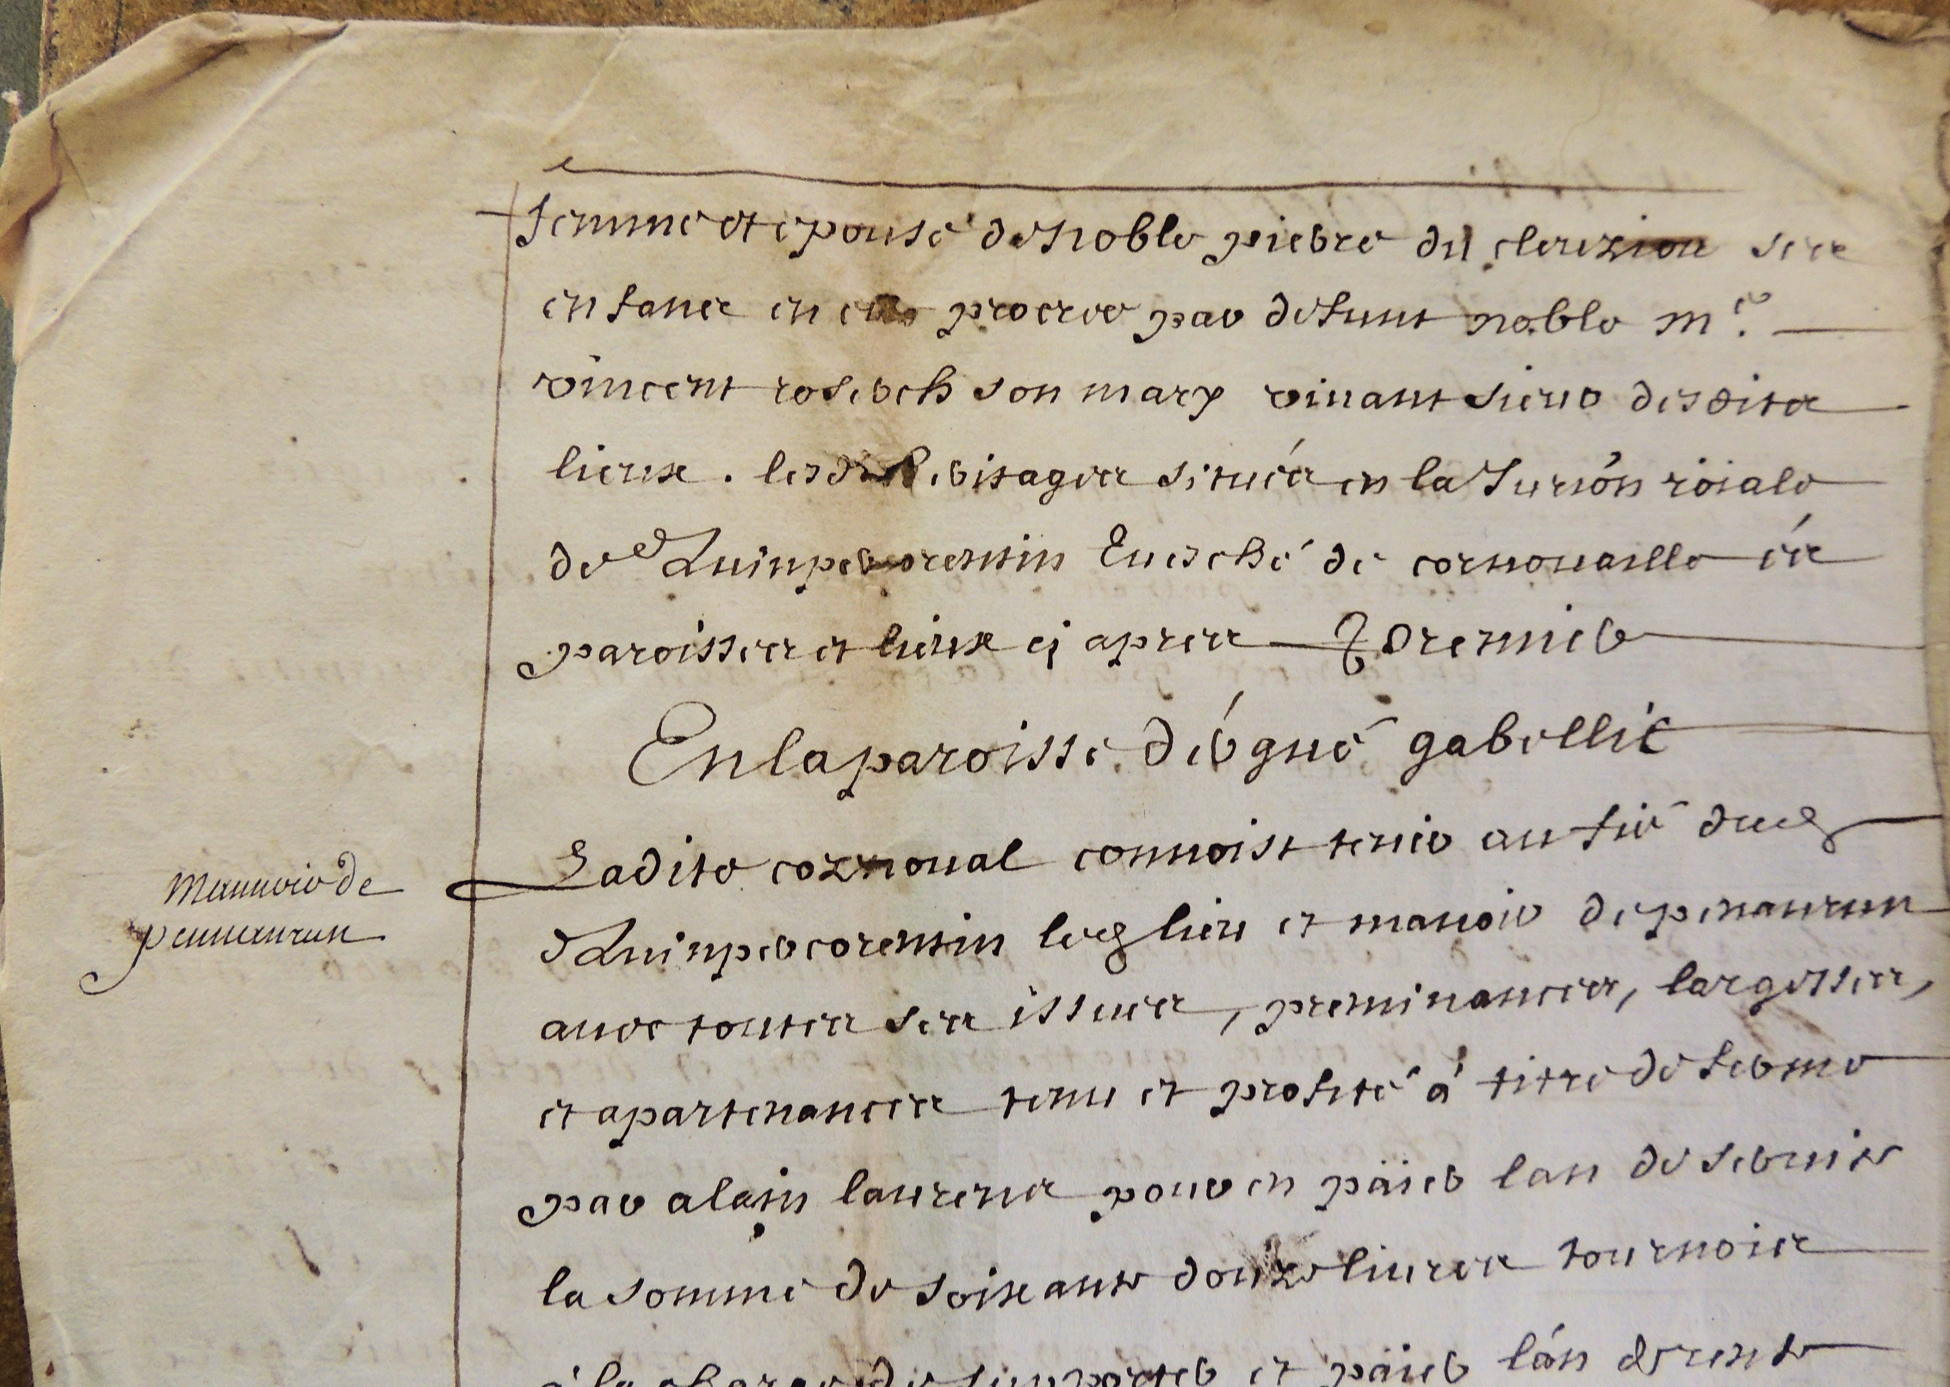 femme et epouse de noble pierre du cleuziou ses
enfans en elle procree par defunt noble m.e
vincent roserch son mary vivant sieur desdits
lieux . lesd. heritages situés en la Jurion roiale
de Quinpercorentin Euesché de cornouaille és
paroisses et lieux cy apres Premier
En la paroisse d'érgué gabellic
Ladite coznoual connoist tenir au fié dud
Quinpercorentin led lieu et manoir de penanrun
Mannoir de
pennanrun
auec toutes ses issues, preminances, largesses,
et apartenances tenu et profité á titre de ferme
par alain laurens pour en païer l'an de fermier
la somme de soixante douze liures tournois
á la charge de suporter et païer l'án de rente